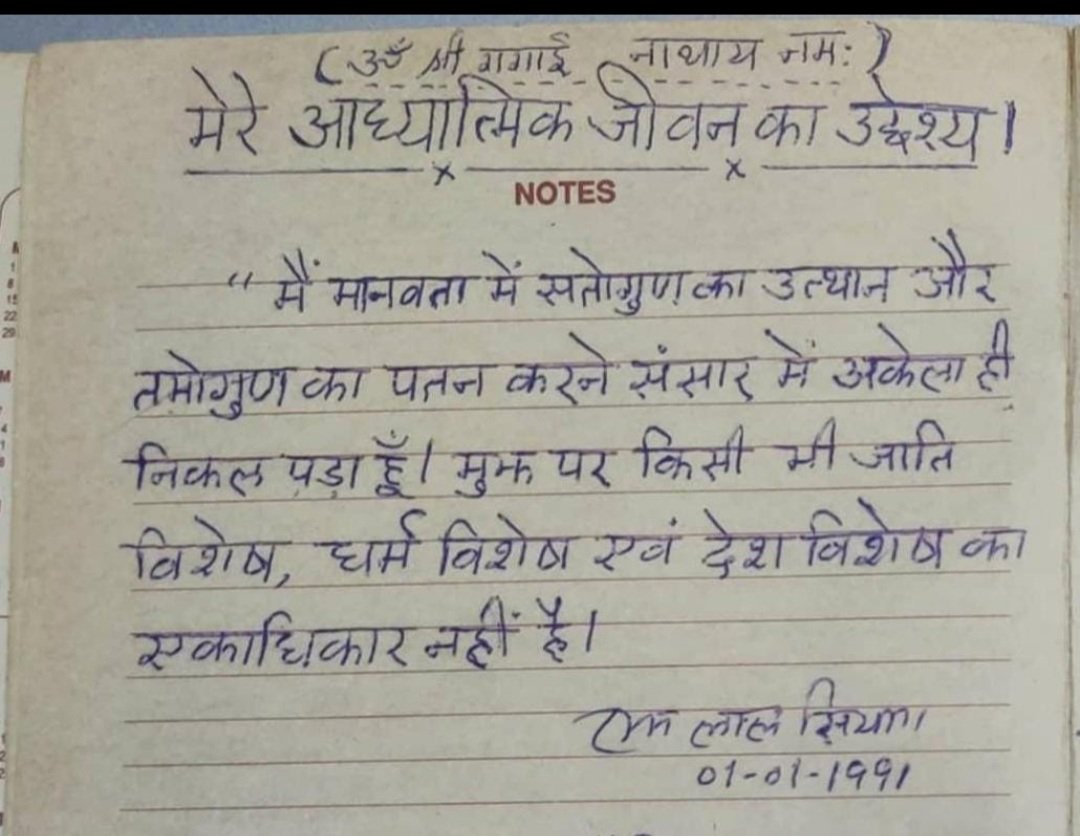 (ॐ श्री गंगाई नाथाय नमः)
मेरे आध्यात्मिक जीवन का उद्देश्य।
NOTES
“मैं मानवता में सतोगुण का उत्थान और
तमोगुण का पतन करने संसार में अकेला ही
निकल पड़ा हूँ। मुझ पर किसी भी जाति
विशेष, धर्म विशेष एवं देश विशेष का
एकाधिकार नहीं है।
लाल सियाग
01-01-1991